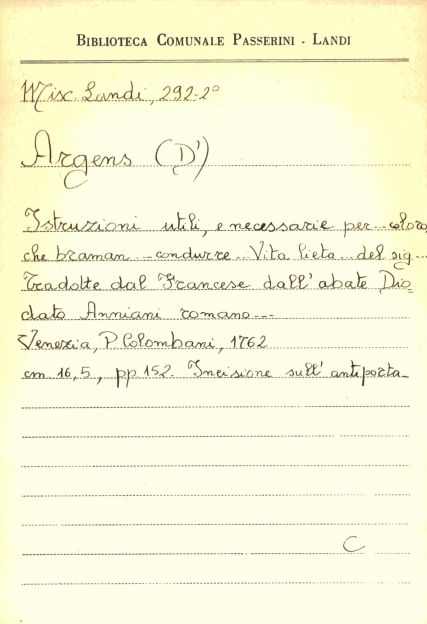 BIBLIOTECA COMUNALE PASSERINI - LANDI
Misc. Landi, 292-2°
Argens (D')
Istruzioni utili, e necessarie per -- coloro
che braman -- condurre -- Vita lieta -- del sig --
Tradotte dal Francese dall'abate Dio=
dato Anniani romano ---
Venezia, P. Colombani, 1762
cm 16,5, pp 152. Incisione sull'antiporta.
C